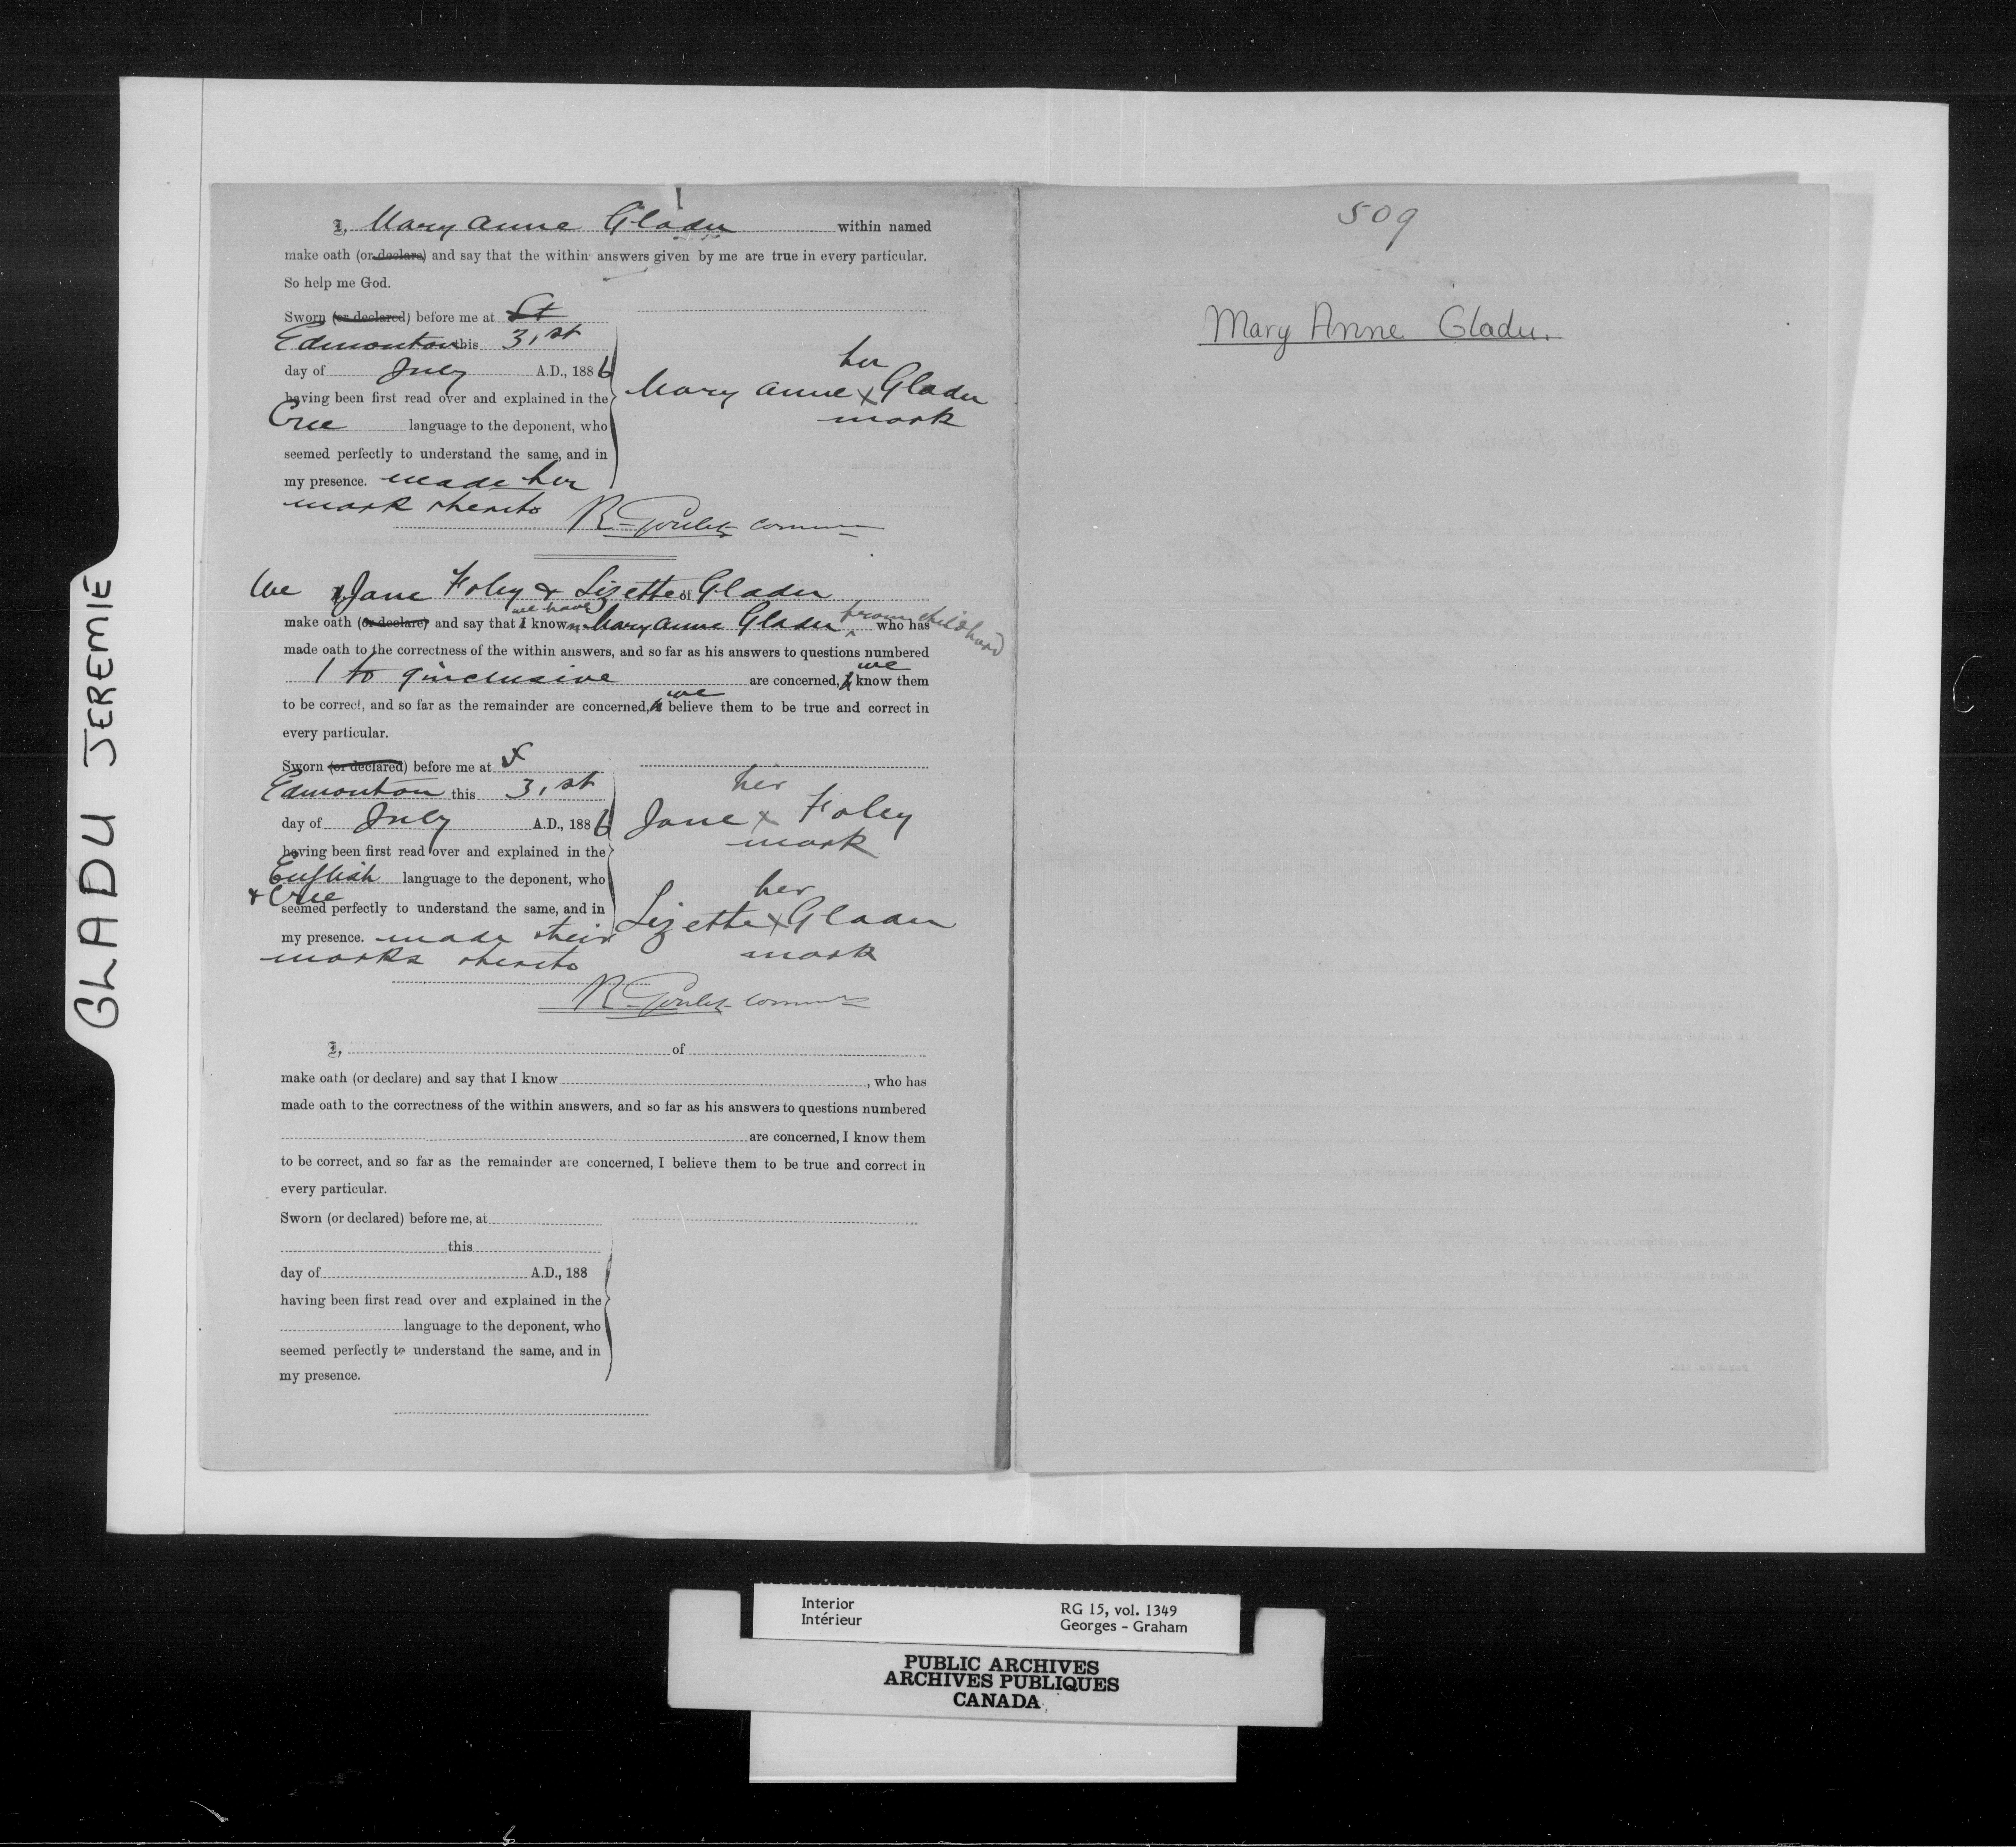 GLADU JEREMIE
I, Mary Anne Gladu within named
make oath (or declare) and say that the within answers given by me are true in every particular.
So help me God.
Sworn (or declared) before me at St
Edmonton this 31st
day of July A.D., 1886
having been first read over and explained in the
Cree language to the deponent, who
seemed perfectly to understand the same, and in
my presence. made her
mark thereto
her
Mary Anne x Gladu
mark
R. Goulet Commr
We Jane Foley & Lizette of Gladu
make oath (or declare) and say that I we have known Mary Anne Gladu from childhood who has
made oath to the correctness of the within answers, and so far as his answers to questions numbered
1 to 9 inclusive are concerned, I we know them
to be correct, and so far as the remainder are concerned, I we believe them to be true and correct in
every particular.
Sworn (or declared) before me at
Edmonton this 31st
day of July A.D., 1886
having been first read over and explained in the
English language to the deponent, who
& Cree
seemed perfectly to understand the same, and in
my presence. made their
marks thereto
her
Jane x Foley
mark
her
Lizette x Gladu
mark
R. Goulet Commr
I, of
make oath (or declare) and say that I know , who has
made oath to the correctness of the within answers, and so far as his answers to questions numbered
are concerned, I know them
to be correct, and so far as the remainder are concerned, I believe them to be true and correct in
every particular.
Sworn (or declared) before me, at
this
day of A.D., 188
having been first read over and explained in the
language to the deponent, who
seemed perfectly to understand the same, and in
my presence.
509
Mary Anne Gladu.
Interior
Intérieur
RG 15, vol. 1349
Georges - Graham
PUBLIC ARCHIVES
ARCHIVES PUBLIQUES
CANADA